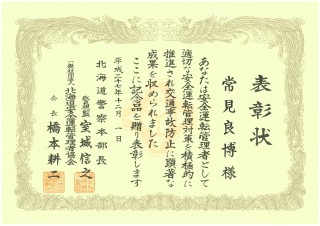 表彰状
常見良博様
あなたは安全運転管理者として
適切な安全運転管理対策を積極的に
推進され交通事故防止に顕著な
成果を収められました
ここに記念品を贈り表彰します
平成二十七年十二月一日
北海道警察本部長
警視監 室城信之
一般社団法人
北海道安全運転管理者協会
会長 橋本耕二